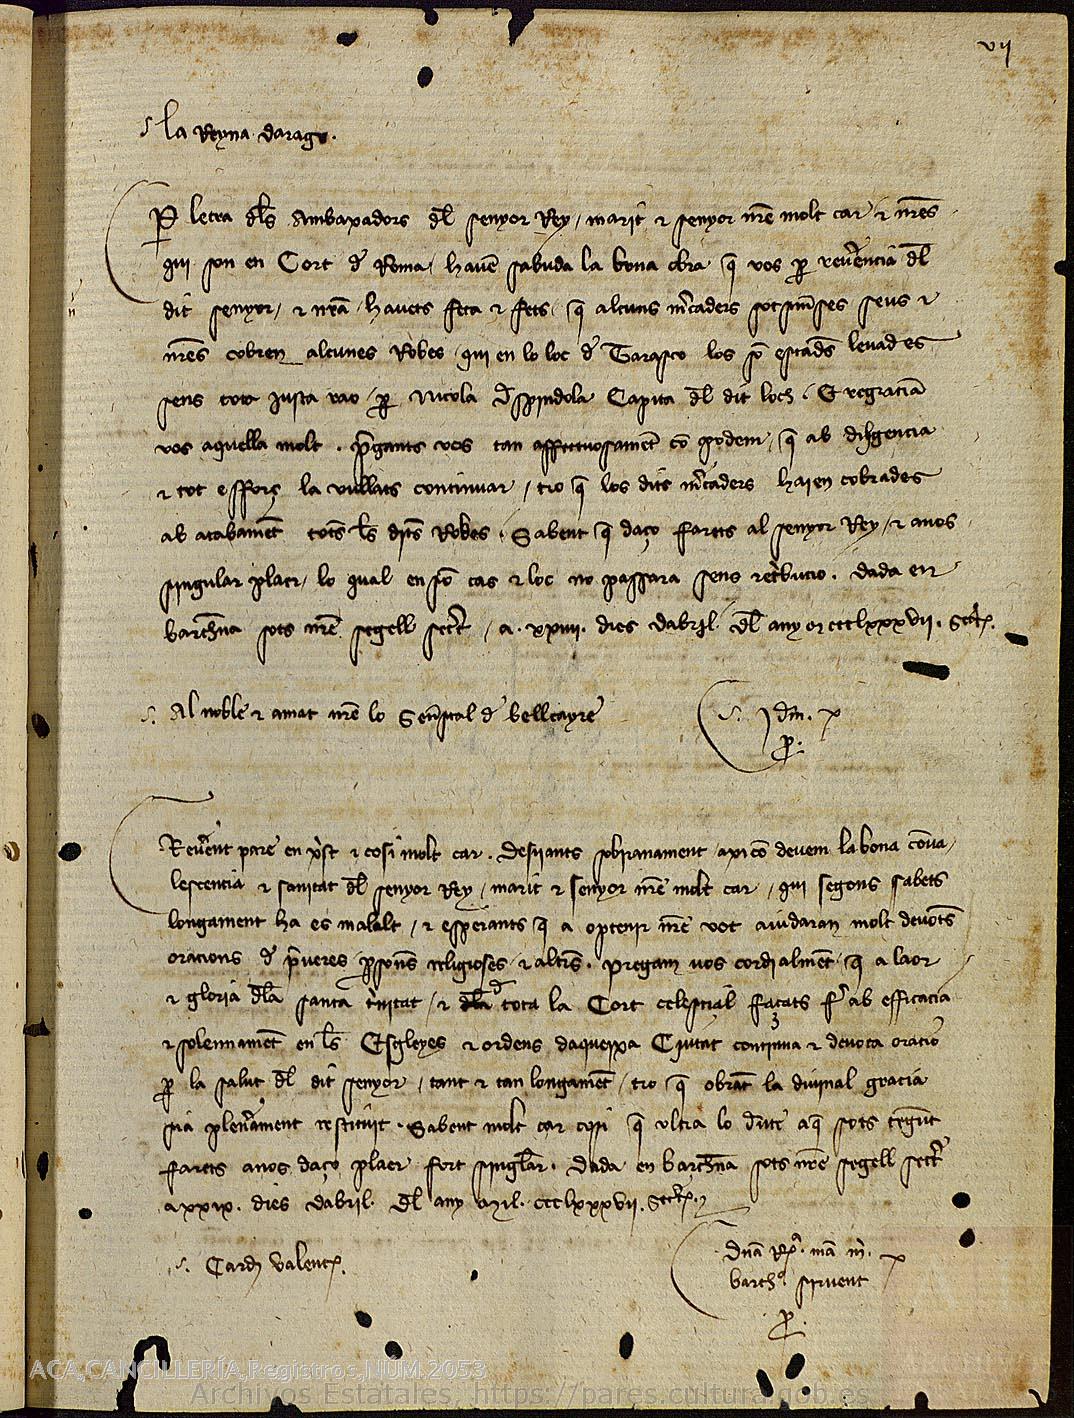 vij
la Reyna darago.
Per letra dels Ambaxadors del senyor Rey, marit e senyor nre molt car e nres
qui son en Cort de Roma, havem sabuda la bona obra que vos per reverencia del
dit senyor, e nra, havets feta e fets, que alcuns mercaders sotsmeses seus e
nres cobren alcunes Robes, qui en lo loc de Tarasco los son estades levades
sens tota justa rao, per Nicola despindola Capita del dit loch. E regraciam
vos aquella molt. pregants vos tan affectuosament com podem, que ab diligencia
e tot esforç la vullats continuar, tro que los dits mercaders haien cobrades
ab acabament totes les dites Robes. Sabent que daço farets al senyor Rey, e anos
singular plaer, lo qual en son cas e loc no passara sens retribucio. dada en
barchna sots nre segell secret, a. xxiiii. dies dabril del any mccclxxxvii.
Al noble e amat nre lo Senescal de bellcayre
Idm.
p.
Reverent pare en xpst e cosi molt car. desijants sobiranament, axi com devem la bona conva,
lescencia e sanitat del senyor Rey, marit e senyor nre molt car, qui segons sabets
longament ha es malalt, e esperants que a optenir nre vot aiudaran molt devotes
oracions de preveres persones religioses e altres. pregam vos cordialment, que a laor
e gloria dela santa trinitat, e de tota la Cort celestial façats fer ab efficacia
e solennament en les Esgleyes e ordens daqueixa Ciutat continua e devota oracio
per la salut del dit senyor, tant e tan longament, tro que obrant la divinal gracia
sia plenerament restituit. Sabent molt car cosi que ultra lo deute aque sots tengut
farets anos daço plaer fort singular. dada en barchna sots nre segell secret
a xxix. dies dabril. del any Mil. ccclxxxvii.
Card valent.
dna Rea. ma m.
barth. sirvent
p.
ACA,CANCILLERÍA,Registros,NUM.2053
Archivos Estatales, https://pares.cultura.gob.es